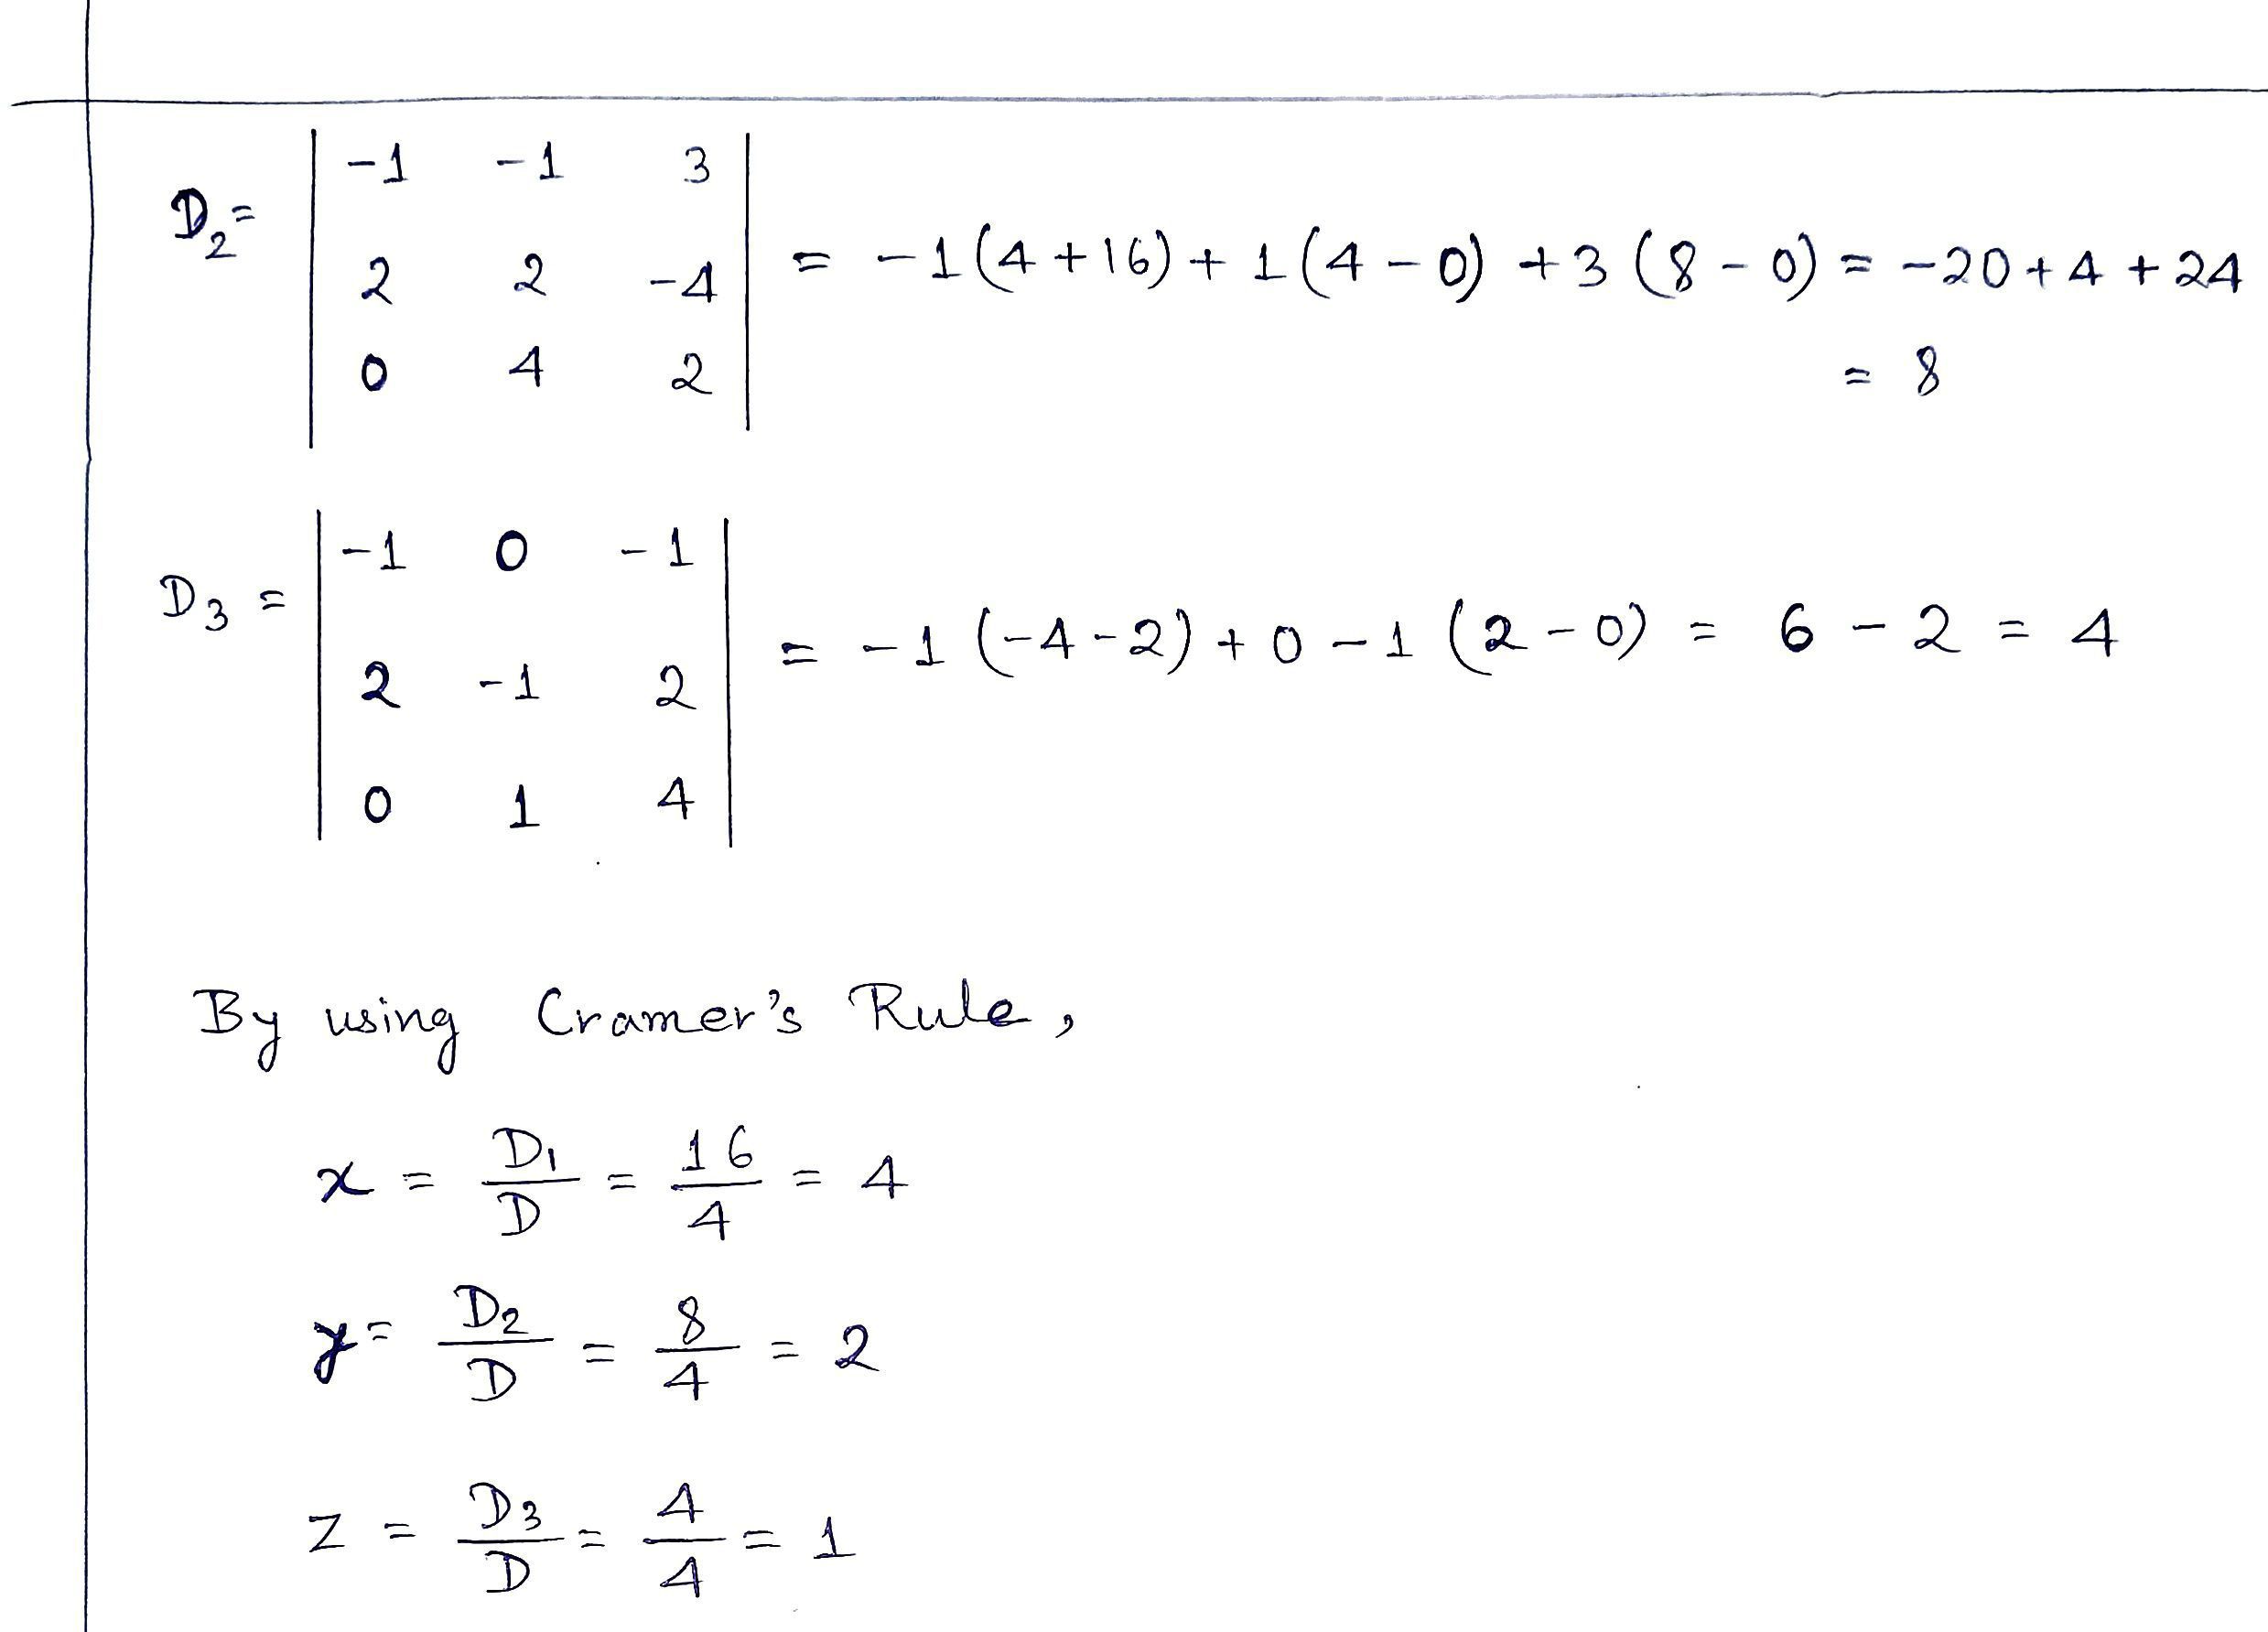 D₂ = | -1 -1 3 |
| 2 2 -4 | = -1(4+16)+1(4-0)+3(8-0) = -20+4+24
| 0 4 2 | = 8
D₃ = | -1 0 -1 |
| 2 -1 2 | = -1(-4-2)+0-1(2-0) = 6-2 = 4
| 0 1 4 |
By using Cramer's Rule,
x = D₁/D = 16/4 = 4
y = D₂/D = 8/4 = 2
z = D₃/D = 4/4 = 1